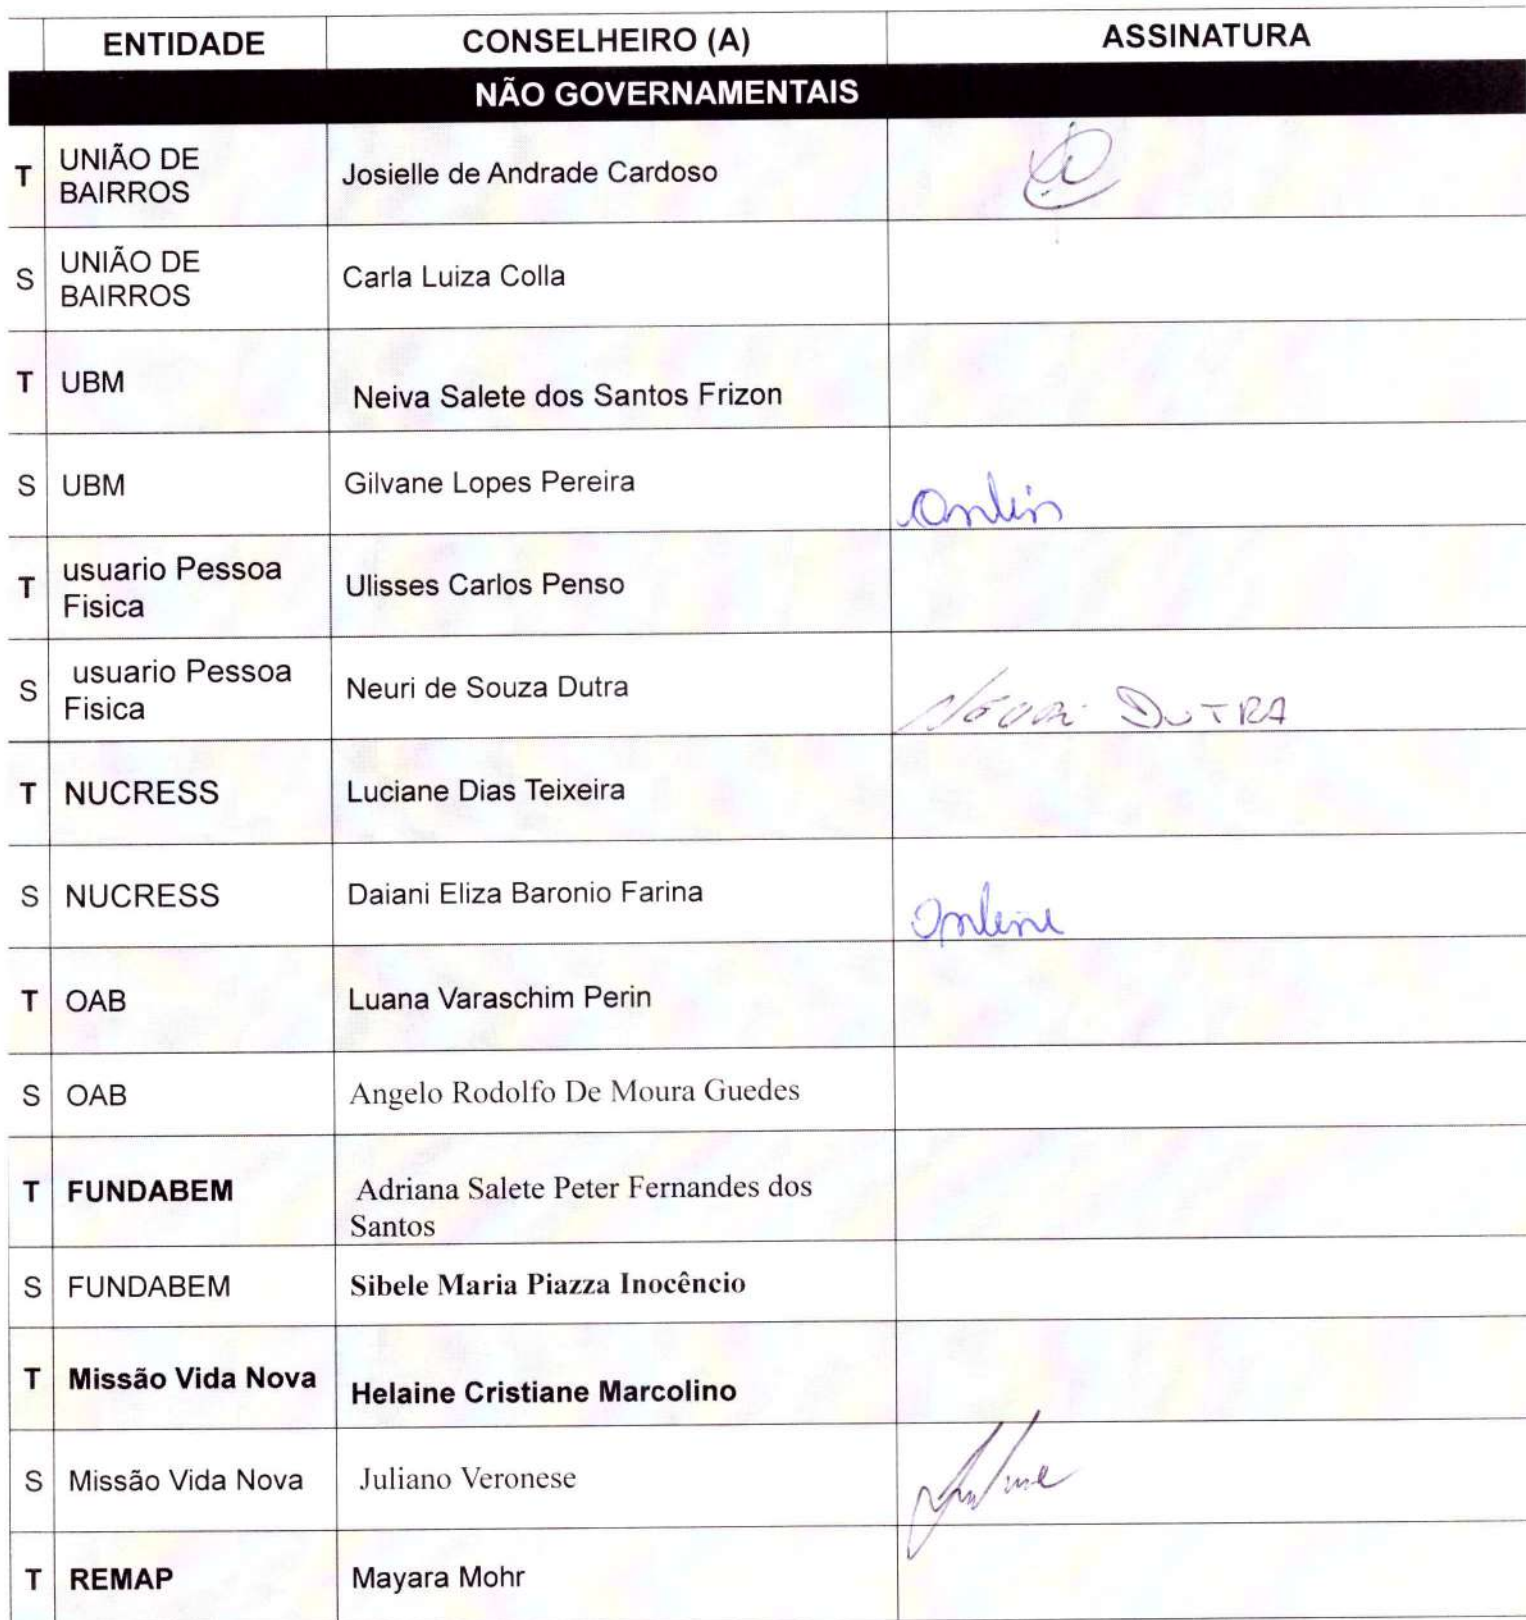 ENTIDADE CONSELHEIRO (A) ASSINATURA
NÃO GOVERNAMENTAIS
T UNIÃO DE
BAIRROS Josielle de Andrade Cardoso
S UNIÃO DE
BAIRROS Carla Luiza Colla
T UBM Neiva Salete dos Santos Frizon
S UBM Gilvane Lopes Pereira
T usuario Pessoa
Fisica Ulisses Carlos Penso
S usuario Pessoa
Fisica Neuri de Souza Dutra DUTRA
T NUCRESS Luciane Dias Teixeira
S NUCRESS Daiani Eliza Baronio Farina Online
T OAB Luana Varaschim Perin
S OAB Angelo Rodolfo De Moura Guedes
T FUNDABEM Adriana Salete Peter Fernandes dos
Santos
S FUNDABEM Sibele Maria Piazza Inocêncio
T Missão Vida Nova Helaine Cristiane Marcolino
S Missão Vida Nova Juliano Veronese
T REMAP Mayara Mohr